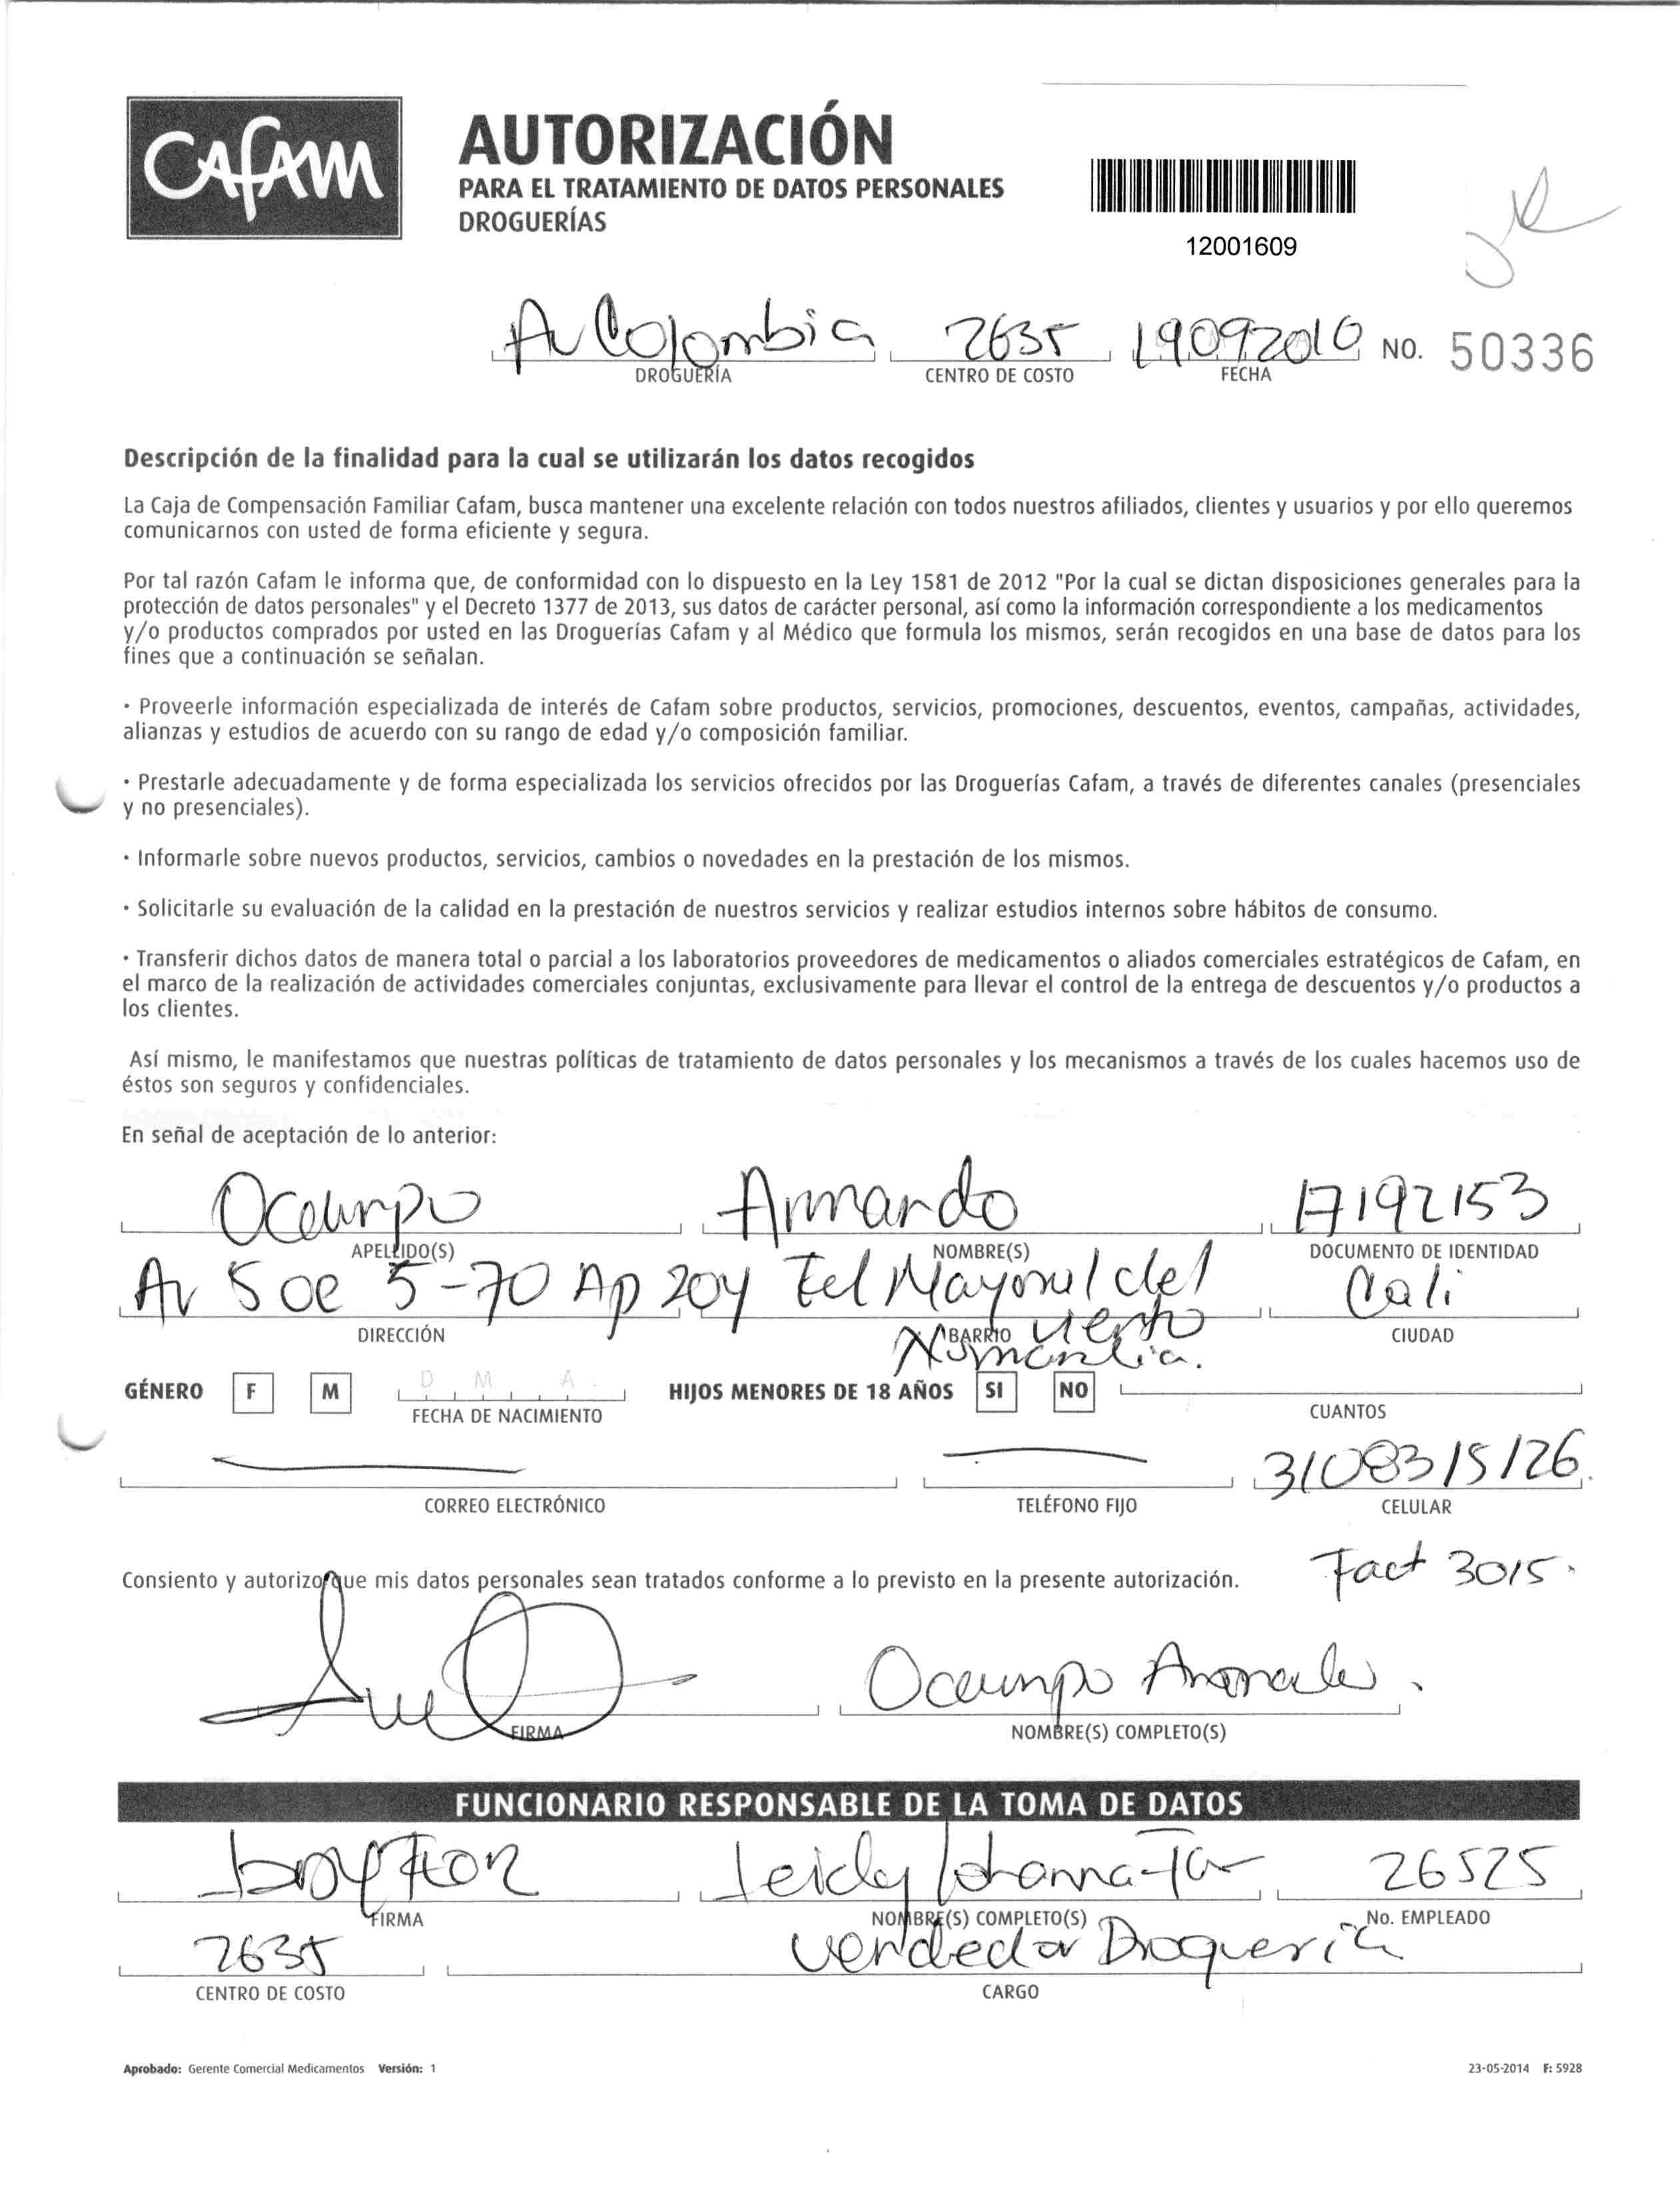 CAFAM
AUTORIZACIÓN
PARA EL TRATAMIENTO DE DATOS PERSONALES
DROGUERÍAS
12001609
Av Colombia 2635 19092016 NO. 50336
DROGUERÍA CENTRO DE COSTO FECHA
Descripción de la finalidad para la cual se utilizarán los datos recogidos
La Caja de Compensación Familiar Cafam, busca mantener una excelente relación con todos nuestros afiliados, clientes y usuarios y por ello queremos
comunicarnos con usted de forma eficiente y segura.
Por tal razón Cafam le informa que, de conformidad con lo dispuesto en la Ley 1581 de 2012 "Por la cual se dictan disposiciones generales para la
protección de datos personales" y el Decreto 1377 de 2013, sus datos de carácter personal, así como la información correspondiente a los medicamentos
y/o productos comprados por usted en las Droguerías Cafam y al Médico que formula los mismos, serán recogidos en una base de datos para los
fines que a continuación se señalan.
· Proveerle información especializada de interés de Cafam sobre productos, servicios, promociones, descuentos, eventos, campañas, actividades,
alianzas y estudios de acuerdo con su rango de edad y/o composición familiar.
· Prestarle adecuadamente y de forma especializada los servicios ofrecidos por las Droguerías Cafam, a través de diferentes canales (presenciales
y no presenciales).
· Informarle sobre nuevos productos, servicios, cambios o novedades en la prestación de los mismos.
· Solicitarle su evaluación de la calidad en la prestación de nuestros servicios y realizar estudios internos sobre hábitos de consumo.
· Transferir dichos datos de manera total o parcial a los laboratorios proveedores de medicamentos o aliados comerciales estratégicos de Cafam, en
el marco de la realización de actividades comerciales conjuntas, exclusivamente para llevar el control de la entrega de descuentos y/o productos a
los clientes.
Así mismo, le manifestamos que nuestras políticas de tratamiento de datos personales y los mecanismos a través de los cuales hacemos uso de
éstos son seguros y confidenciales.
En señal de aceptación de lo anterior:
Ocampo Armando 17192153
APELLIDO(S) NOMBRE(S) DOCUMENTO DE IDENTIDAD
Av 5 oe 5-70 Ap 204 Mayoral del Cali
viento
DIRECCIÓN BARRIO CIUDAD
Normandia.
GÉNERO F M D M A HIJOS MENORES DE 18 AÑOS SI NO
FECHA DE NACIMIENTO CUANTOS
3108315126
CORREO ELECTRÓNICO TELÉFONO FIJO CELULAR
Consiento y autorizo que mis datos personales sean tratados conforme a lo previsto en la presente autorización.
Fact 3015.
Ocampo Armando.
FIRMA NOMBRE(S) COMPLETO(S)
FUNCIONARIO RESPONSABLE DE LA TOMA DE DATOS
Leidy Johanna 26525
FIRMA NOMBRE(S) COMPLETO(S) No. EMPLEADO
2635 vendedor Drogueria
CENTRO DE COSTO CARGO
Aprobado: Gerente Comercial Medicamentos Versión: 1 23-05-2014 F: 5928